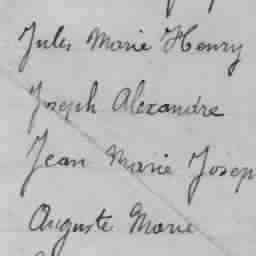 Jules Marie Henry
Joseph Alexandre
Jean Marie Josep
Auguste Marie